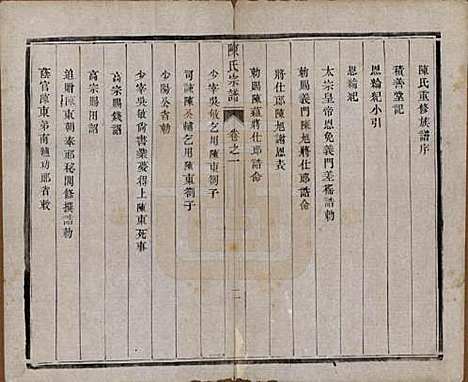 陳氏重修族譜序
積善堂記
恩綸紀小引
恩綸紀
太宗皇帝恩免義門差徭誥
勅賜義門陳旭將仕郎誥命
將仕郎陳旭謝恩表
勅賜陳蘊將仕郎誥命
陳氏宗譜
卷之一
二
少宰吳敏乞用陳東劄子
司諫陳公輔乞用陳東劄子
少陽公省勅
少宰吳敏尚書業夢得上陳東死事
高宗賜錢詔
高宗賜用詔
追贈陳東朝奉郎秘閣修撰誥勅
蔭官陳東弟南廸功郎省敕